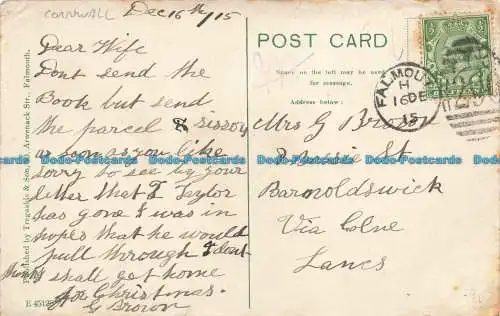 CORNWALL
Dec 16th/15
Dear Wife
Dont send the
Book but send
the parcel & sissors
as soon as you like
sorry to see by your
letter that T Taylor
has gone I was in
hopes that he would
pull through I dont
think I shall get home
for Christmas.
G Brown
Published by Tregaskis & Son, Arwenack Str., Falmouth.
E 4512
POST CARD
Space on the left may be used for message.
Address below:
FALMOUTH
H
16 DE
15
Mrs G Brown
St
Barnoldswick
Via Colne
Lancs
Dodo-Postcards Dodo-Postcards Dodo-Postcards Dodo-Postcards Dodo-Postcards
Dodo-Postcards Dodo-Postcards Dodo-Postcards Dodo-Postcards Dodo-Postcards